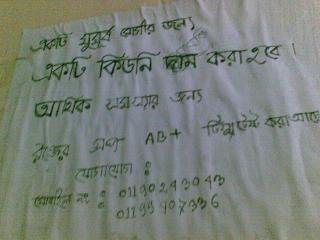 একটি মুমূর্ষ রোগীর জন্যে
একটি কিডনি দান করা হবে।
আর্থিক সমস্যার জন্য
রক্তের গ্রুপ AB+ টিস্যু টেস্ট করা আছে
যোগাযোগ :
মোবাইল নং : 01190243043
01199407336